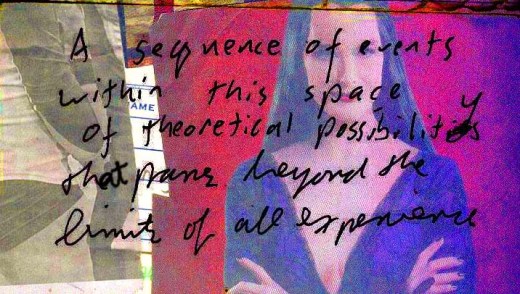 A sequence of events
within this space
AME
of theoretical possibility
that beyond the
limits of all experience